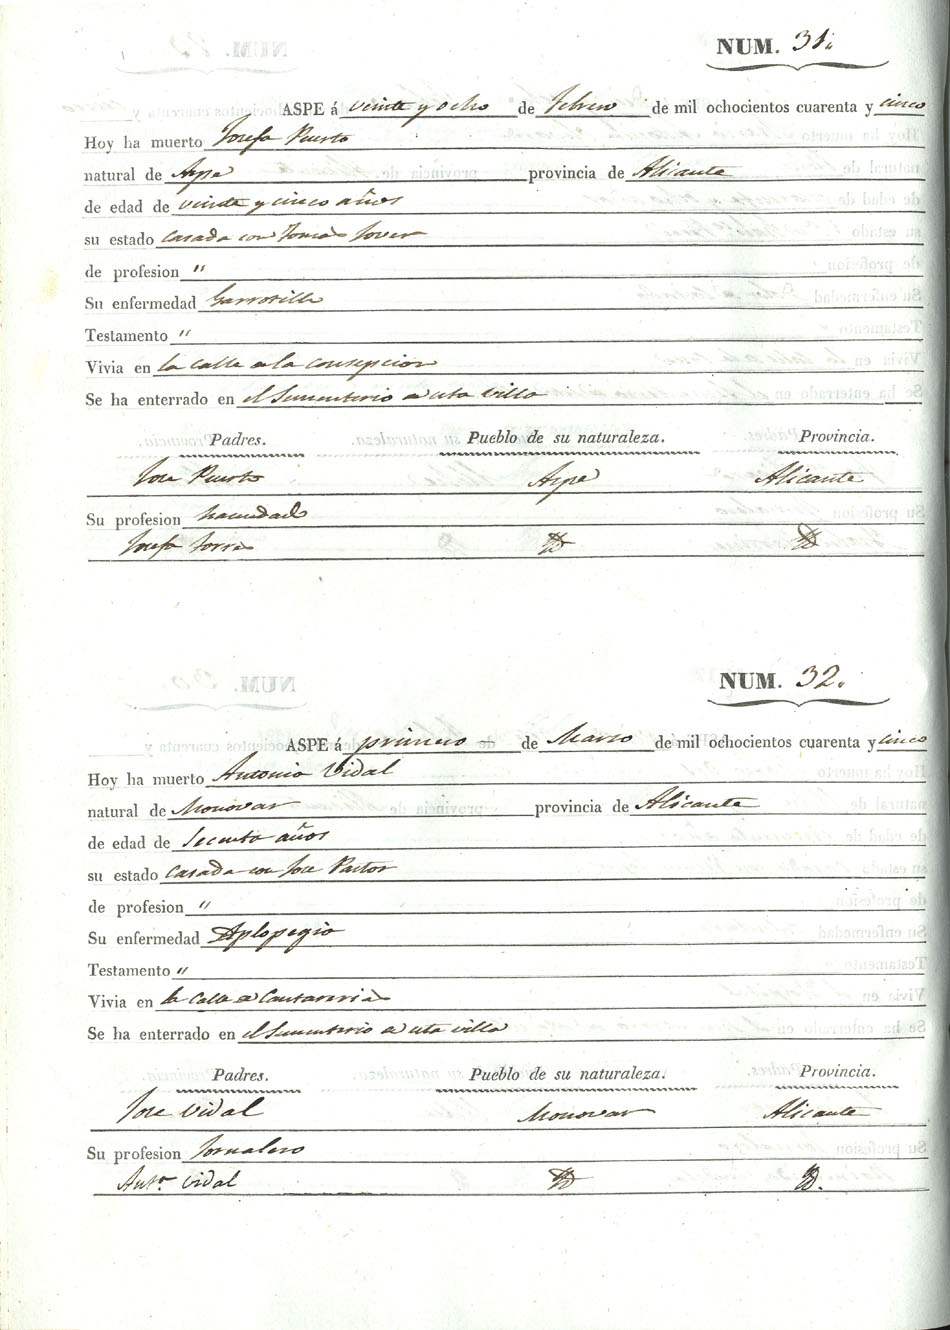 NUM. 31.
ASPE á veinte y ocho de Febrero de mil ochocientos cuarenta y cinco
Hoy ha muerto Josefa Puerto
natural de Aspe provincia de Alicante
de edad de veinte y cinco años
su estado casada con Tomas Jover
de profesion "
Su enfermedad Garrotillo
Testamento "
Vivia en la calle de la consepcion
Se ha enterrado en el Sementerio de esta villa
Padres. Pueblo de su naturaleza. Provincia.
Jose Puerto Aspe Alicante
Su profesion hacendado
Josefa Torres
NUM. 32.
ASPE á primero de de Marzo de mil ochocientos cuarenta y cinco
Hoy ha muerto Antonia Vidal
natural de Monovar provincia de Alicante
de edad de años
su estado casada con Jose Pastor
de profesion "
Su enfermedad Aplopegia
Testamento "
Vivia en la calle de Cantareria
Se ha enterrado en el Sementerio de esta villa
Padres. Pueblo de su naturaleza. Provincia.
Jose Vidal Monovar Alicante
Su profesion Jornalero
Antª Vidal